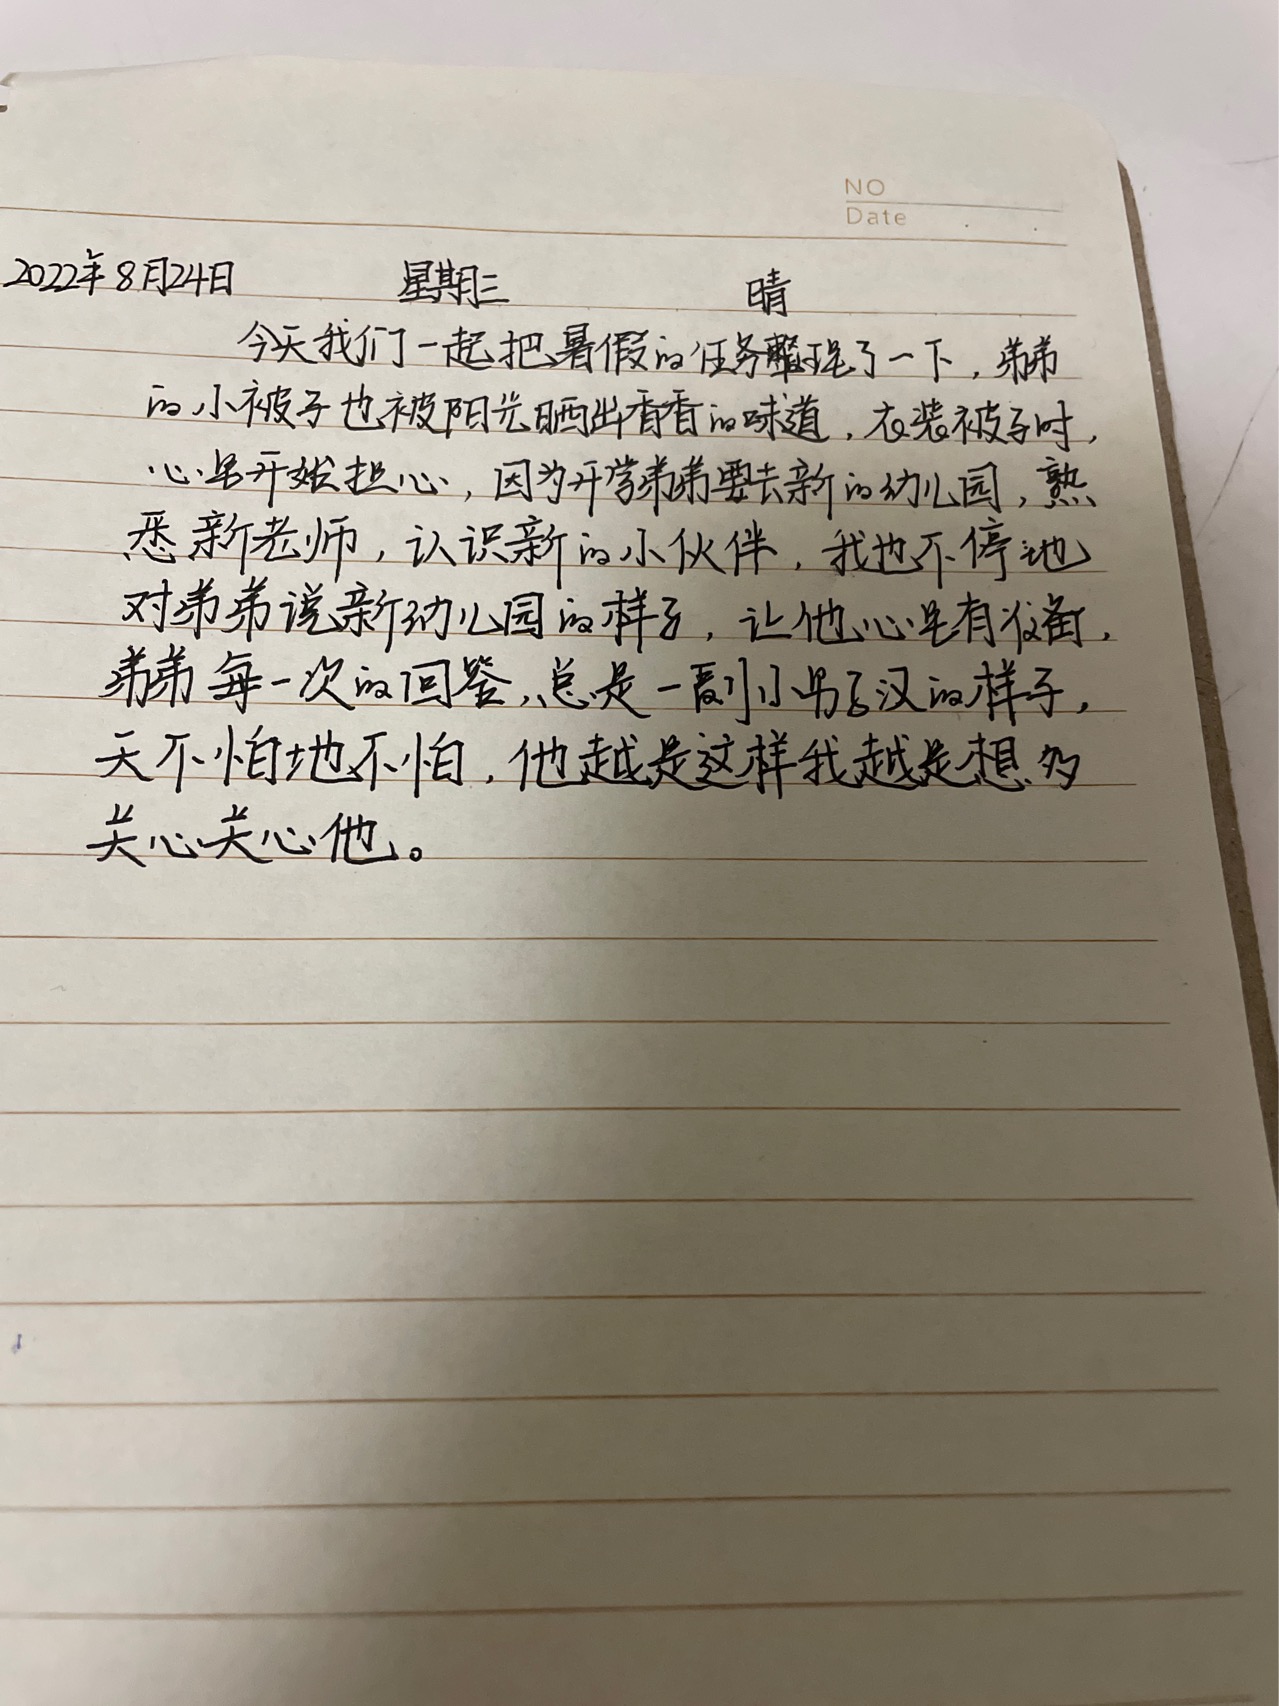 NO
Date
2022年8月24日 星期三 晴
今天我们一起把暑假的任务整理了一下，弟弟
的小被子也被阳光晒出香香的味道，衣装被子时，
心里开始担心，因为开学弟弟要去新的幼儿园，熟
悉新老师，认识新的小伙伴，我也不停地
对弟弟说新幼儿园的样子，让他心里有准备，
弟弟每一次的回答，总是一副小男子汉的样子，
天不怕地不怕，他越是这样我越是想多
关心关心他。